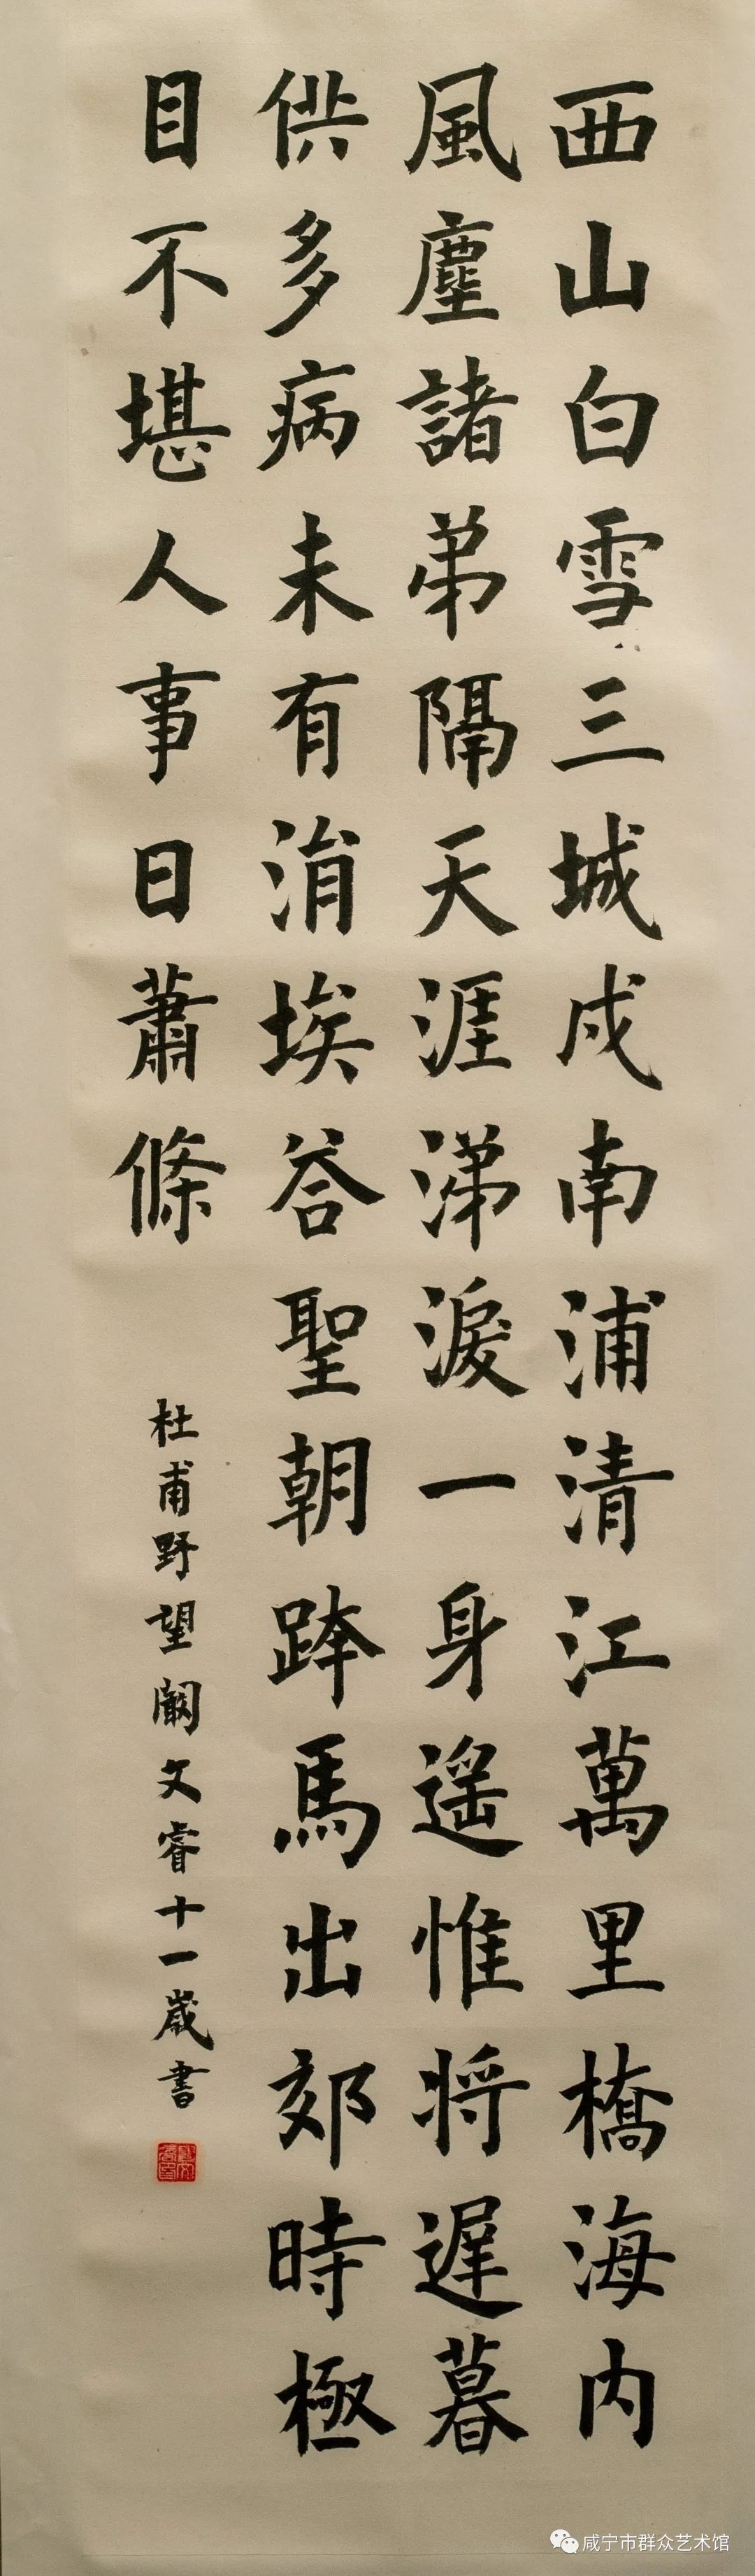 西山白雪三城戍南浦清江萬里橋海内
風塵諸弟隔天涯涕淚一身遥惟将遲暮
供多病未有涓埃荅聖朝跨馬出郊時極
目不堪人事日蕭條
杜甫野望闞文睿十一歲書
咸宁市群众艺术馆